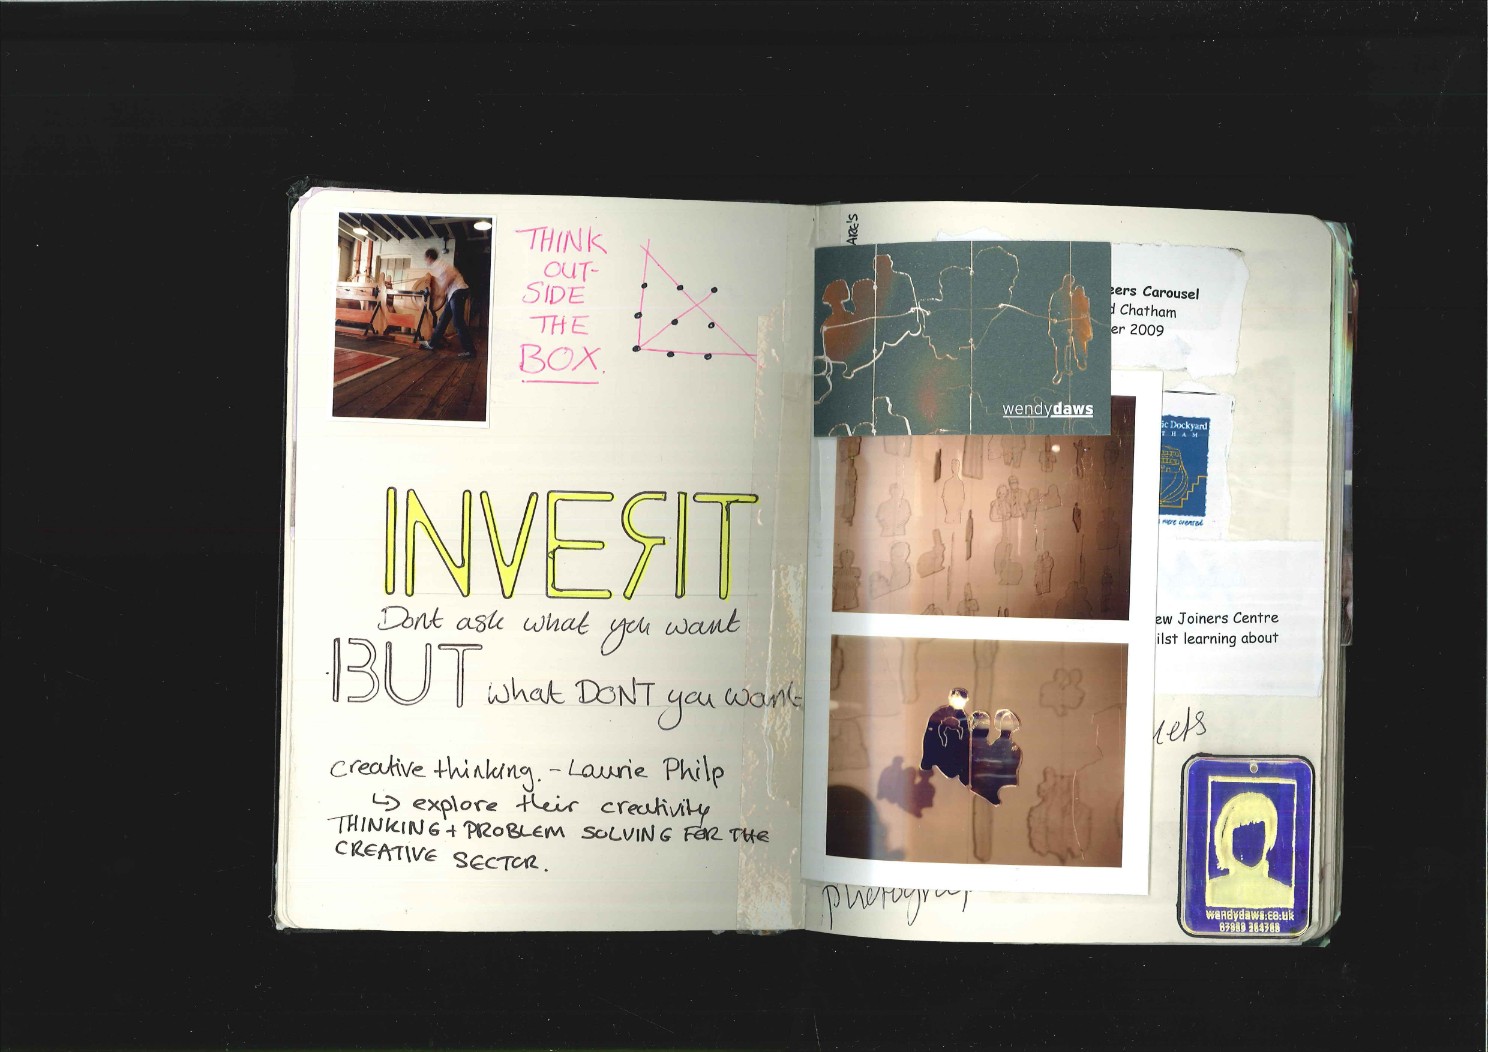 THINK
OUT-
SIDE
THE
BOX.
INVERIT
Dont ask what you want
BUT what DONT you want
creative thinking. - Laurie Philp
↳ explore their creativity
THINKING + PROBLEM SOLVING FOR THE
CREATIVE SECTOR.
ARE'S
eers Carousel
d Chatham
er 2009
wendydaws
ic Dockyard
T H A M
were created
ew Joiners Centre
ilst learning about
kets
photograp
wendydaws.co.uk